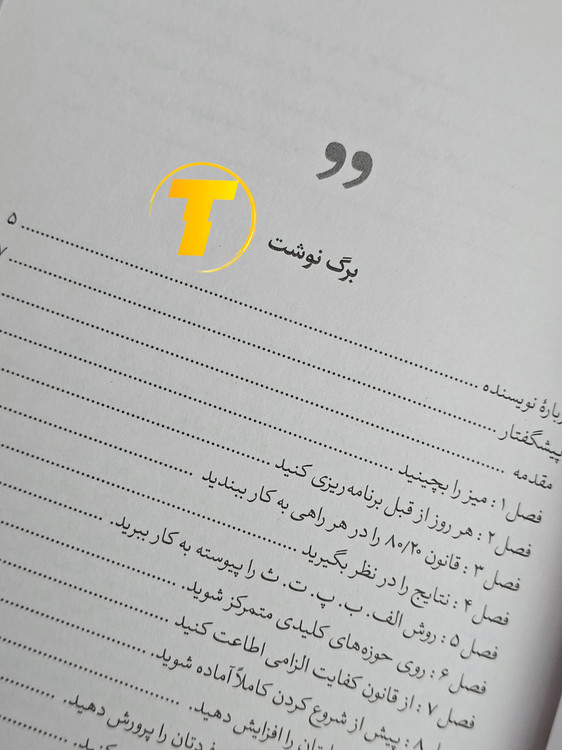 ”
T
برگ نوشت
دربارهٔ نویسنده ........ ۵
پیشگفتار ........ ۷
مقدمه ........
فصل ۱ : میز را بچینید ........
فصل ۲ : هر روز از قبل برنامه‌ریزی کنید ........
فصل ۳ : قانون ۸۰/۲۰ را در هر راهی به کار ببندید ........
فصل ۴ : نتایج را در نظر بگیرید ........
فصل ۵ : روش الف. ب. پ. ت. ث را پیوسته به کار ببرید. ........
فصل ۶ : روی حوزه‌های کلیدی متمرکز شوید. ........
فصل ۷ : از قانون کفایت الزامی اطاعت کنید ........
۸ : پیش از شروع کردن کاملاً آماده شوید. ........
را افزایش دهید. ........
را پرورش دهید. ........
کنید. ........